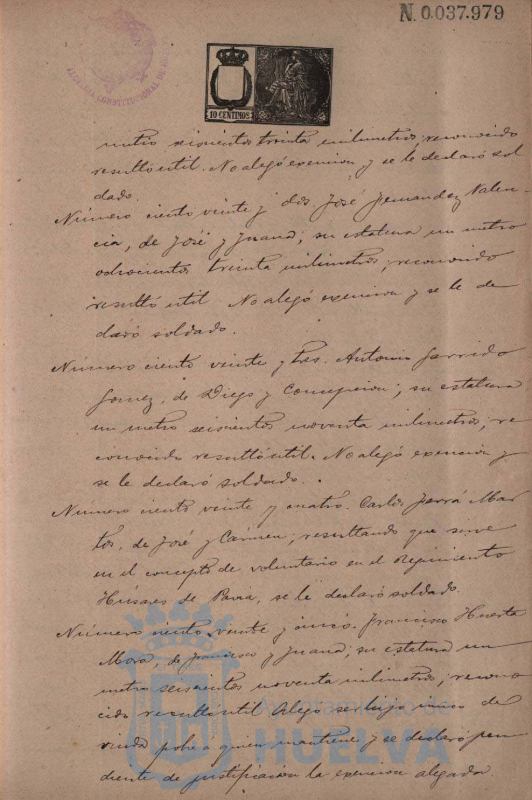 N. 0.037.979
ALCALDIA CONSTITUCIONAL DE
10 CENTIMOS
metro seiscientos treinta milimetros; reconocido
resultó util. No alegó exencion y se le declaró sol
dado.
Número ciento veinte y dos. José Fernandez Valen-
cia, de José y Juana; su estatura un metro
ochocientos treinta milimetros; reconocido
resultó util No alegó exencion y se le de
claró soldado.
Número ciento veinte y tres. Antonio Garrido
Gomez, de Diego y Concepcion; su estatura
un metro seiscientos noventa milimetros; re
conocido resultó util. No alegó exencion y
se le declaró soldado.
Número ciento veinte y cuatro. Carlos Mar
tos, de José y Cármen; resultando que sirve
en el concepto de voluntario en el Regimiento
Husares de Pavia, se le declaró soldado.
Número ciento veinte y cinco. Francisco Huerta
Mora, de Francisco y Juana; su estatura un
metro seiscientos noventa milimetros; recono
cido resultó util Alegó ser hijo único de
viuda pobre a quien mantiene y se declaró pen
diente de justificacion la exencion alegada
Ayuntamiento de
HUELVA